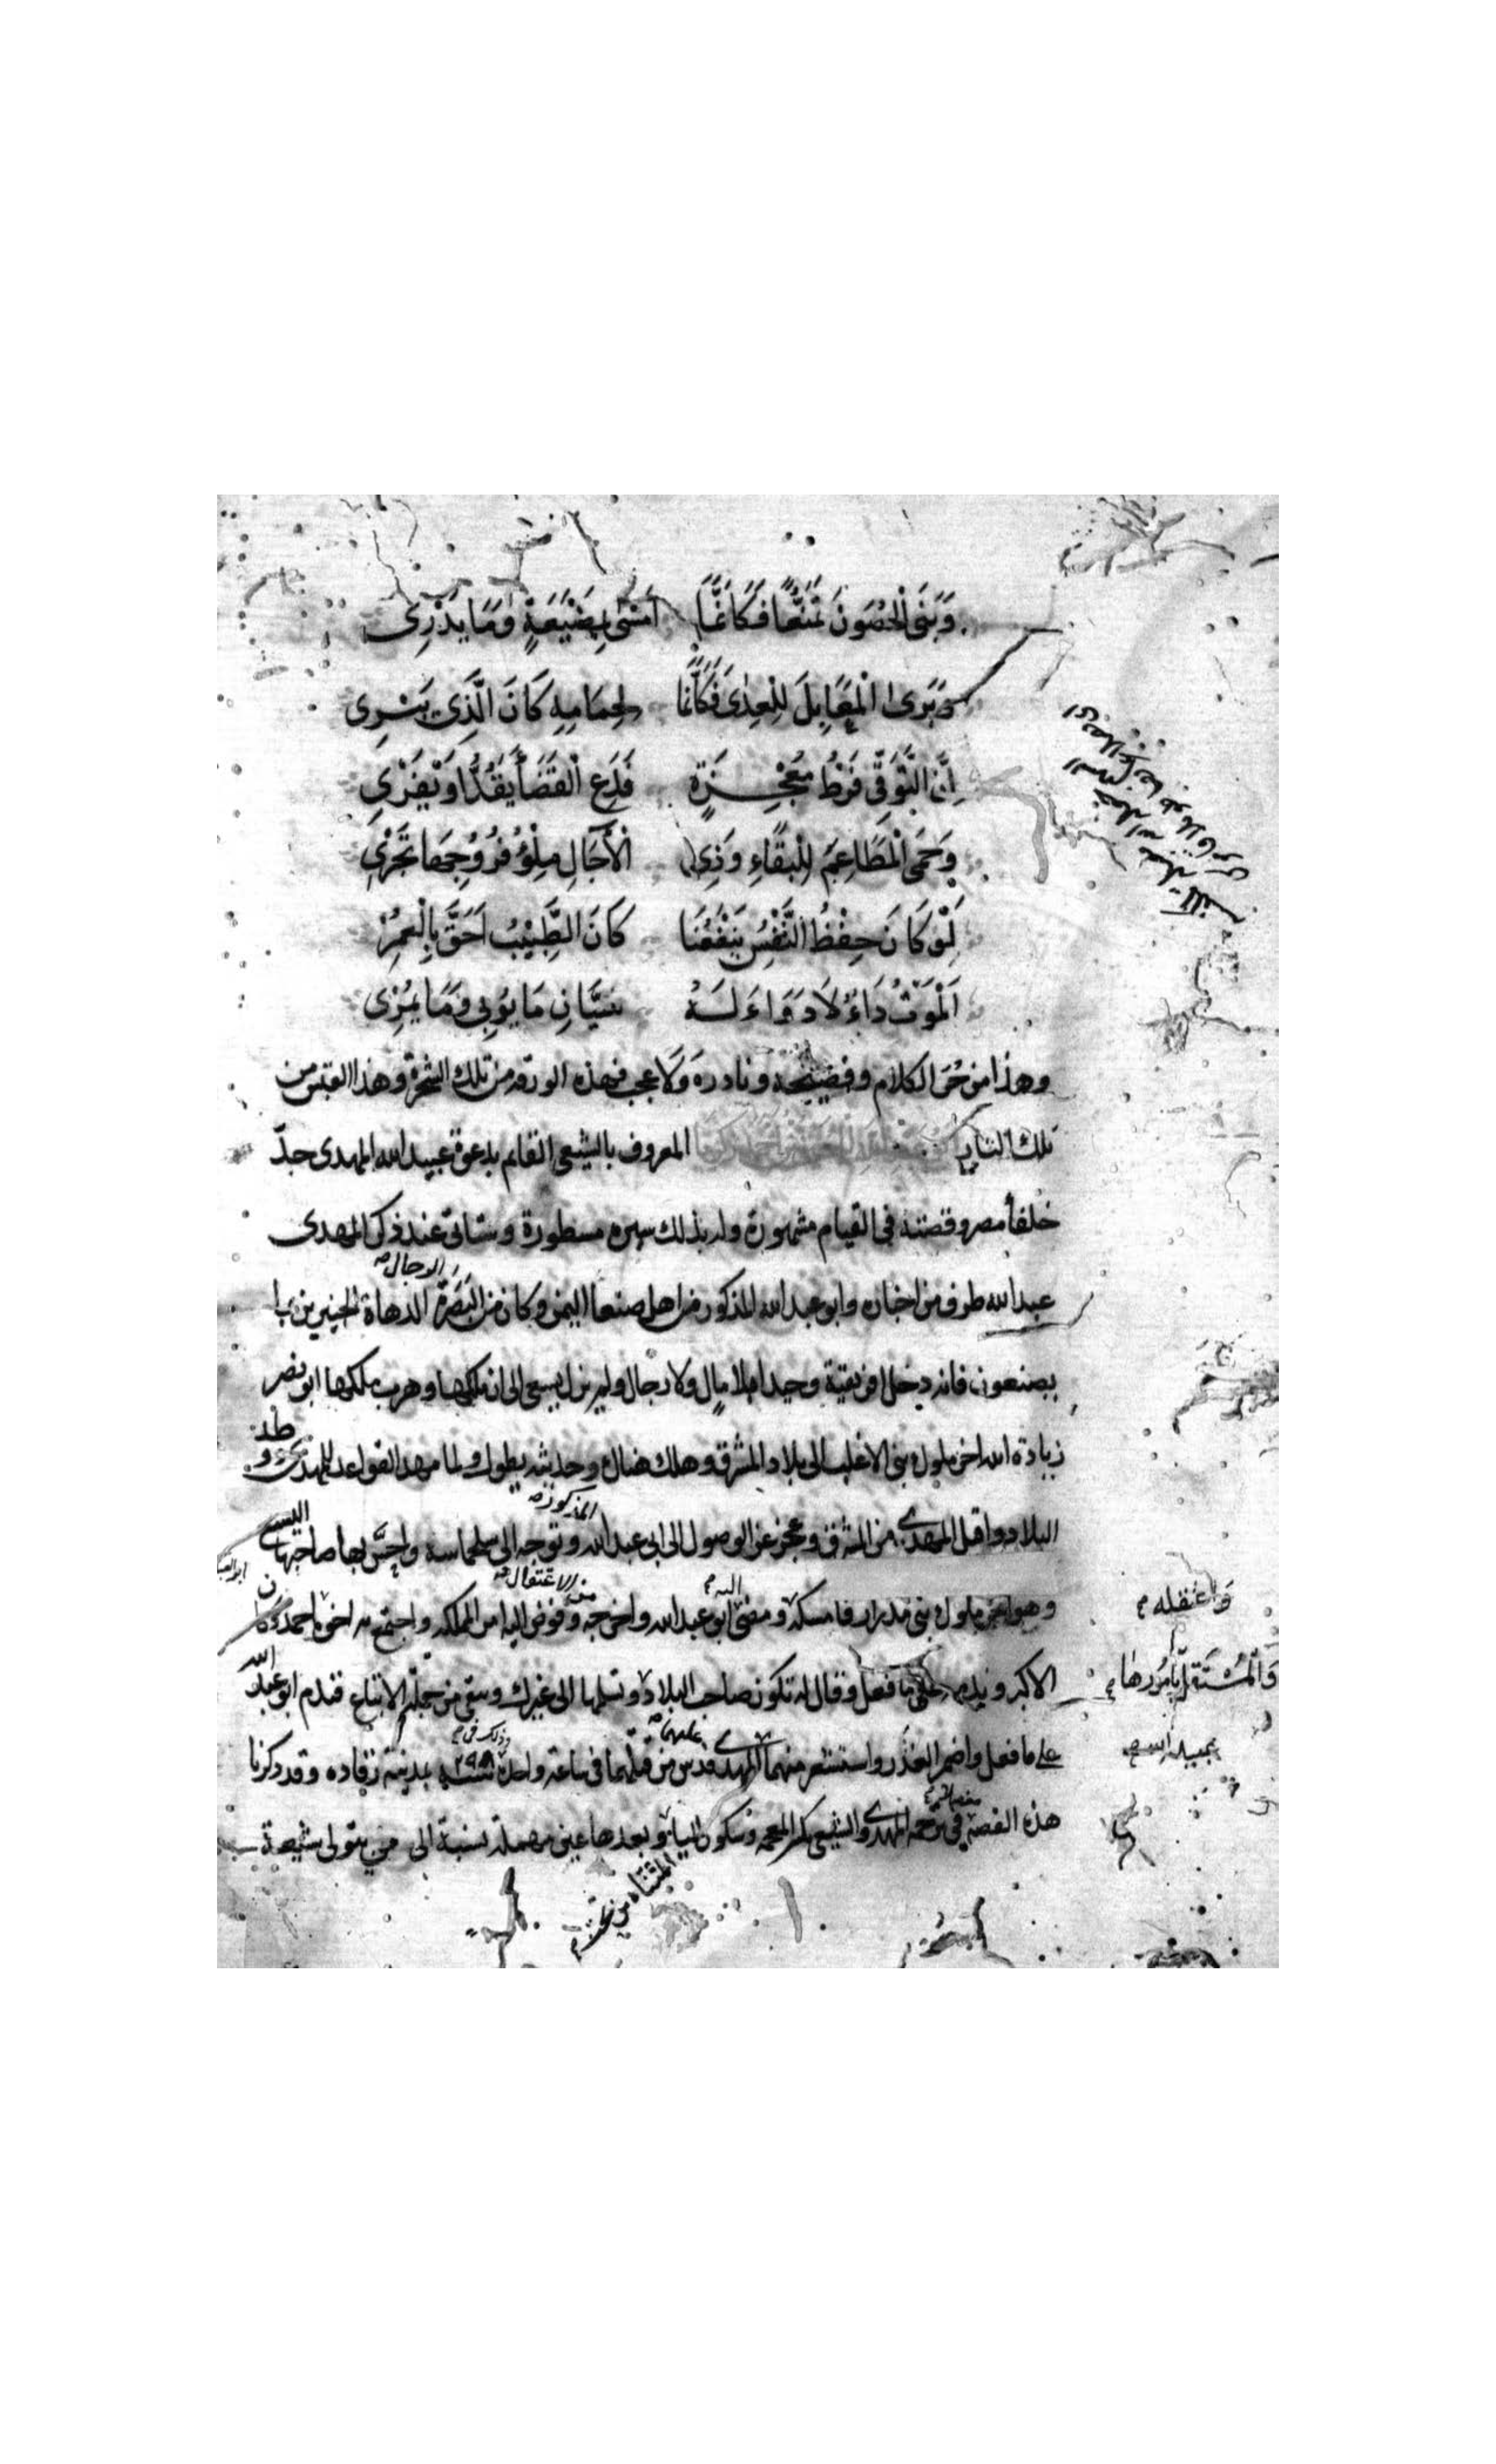 وَبَنَى الْحُصُونَ تَمَنُّعًا فَكَأَنَّمَا أَمْسَى بِضَيْعَةٍ وَمَا يَدْرِى
وَيَرَى الْمَعَابِلَ لِلْعِدَى فَكَأَنَّمَا لِحِمَامِهِ كَانَ الَّذِى يَبْرِى
اِنَّ التَّوَقِّى فَرْطُ مُعْجِزَةٍ فَدَعِ الْقَضَاءَ يَقُدُّ اَوْ يَفْرِى
وَحَمَى الْمَطَاعِمَ لِلْبَقَاءِ وَذِى الْاَجَالِ مِلْؤُ فُرُوْجِهَا تَجْرِى
لَوْ كَانَ حِفْظُ النَّفْسِ يَنْفَعُنَا كَانَ الطَّبِيْبُ اَحَقَّ بِالْعُمْرِ
اَلْمَوْتُ دَاءٌ لَا دَوَاءَ لَهُ سِيَّانِ مَا يُوبِى وَمَا يُمْرِى
وهذا من حر الكلام وفصيحه ونادره وَلَا عجب فهذه الورقة من تلك الشجرة وهذا القبس من
تلك النار المعروف بالشيعى القائم بدعوة عبيد الله المهدى جدّ
خلفأ مصر وقصته فى القيام مشهورة وله بذلك سيره مسطورة وستأتى عند ذكر المهدى
الرجال
عبد الله طرف من اخباره وابو عبد الله المذكور من اهل صنعا اليمن وكان من الدهاة الخبيرين بما
يصنعون فانه دخل افريقية وحيدا بلا مال ولا رجال ولم يزل يسعى الى ان ملكها وهرب ملكها ابو نصر
زيادة الله اخر ملوك بنى الاغلب الى بلاد المشرق وهلك هناك وحديثه يطول ولما مهد القواعد للمهدى ووطد
المذكور
البلاد واقبل المهدى من المشرق وعجز عن الوصول الى ابى عبد الله وتوجه الى سجلماسة واحسّ بها صاحبها اليسع
واعتقله
اليه
من الاعتقال
وهو اخر ملوك بنى مدرار فامسكه ومضى ابو عبد الله واخرجه وفوض اليه امر المملكه واجتمع به اخوه احمد وكان
وَالْمُسْتَقِلّ بأمُورها
الاكبر وندمه على ما فعل وقال له تكون صاحب البلاد وتسلمها الى غيرك وتبقى من جملة الاتباع فندم ابو عبد الله
بعبيد الله
عليهما
وذلك فى
على ما فعل واضمر الغدر واستشعر منهما المهدى فدس من قتلهما فى ساعة واحدة سنة ٢٩٨ بمدينة رقاده وقد ذكرنا
هذه القصة فى ترجمة المهدى والشيعى بكسر المعجمه وسكون اليا وبعدها عين مهملة نسبة الى من يتولى شيعة
المثناه من تحت